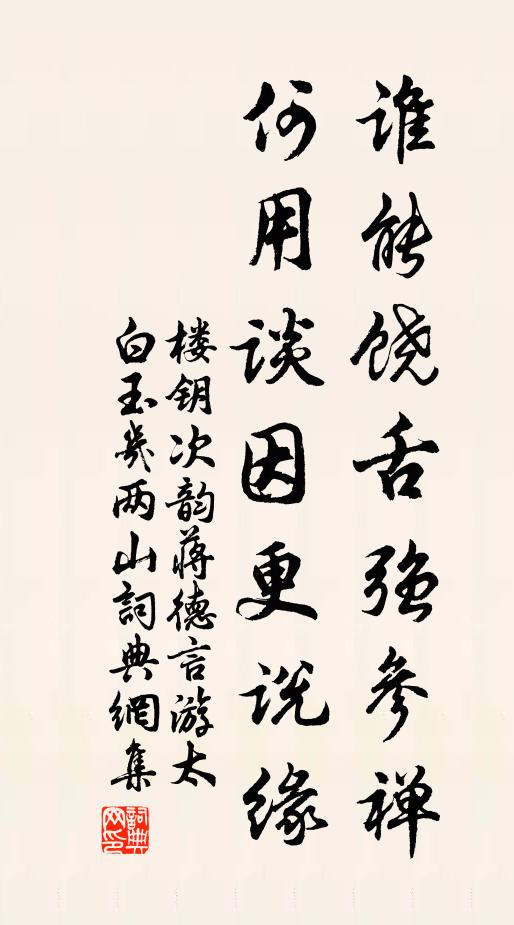 谁能饶舌强参禅
何用谈因更说缘
楼钥次韵蒋德言游太
白玉几两山詞典網集
詞典
网印